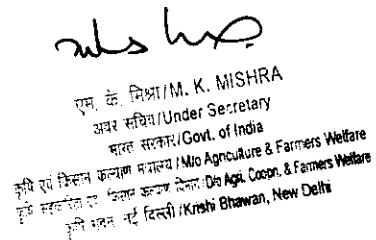 एम. के. मिश्रा/M. K. MISHRA
अवर सचिव/Under Secretary
भारत सरकार/Govt. of India
कृषि एवं किसान कल्याण मंत्रालय / M/o Agriculture & Farmers Welfare
कृषि सहकारिता एवं किसान कल्याण विभाग / D/o Agri. Coopn. & Farmers Welfare
कृषि भवन, नई दिल्ली / Krishi Bhawan, New Delhi